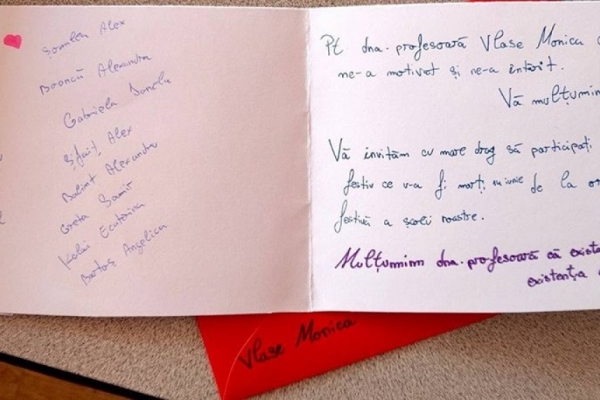 Șomlea Alex
Boancă Alexandra
Gabriela Danciu
Sfaiț Alex
Balint Alexandru
Greta Samir
Kelai Ecaterina
Bartoș Angelica
Pt. dna. profesoară Vlase Monica c
ne-a motivat și ne-a întărit.
Vă mulțumim
Vă invităm cu mare drag să participați
festiv ce v-a fi marți, iunie de la or
festivă a școlii noastre.
Mulțumim dna. profesoară că exista
existența
Vlase Monica